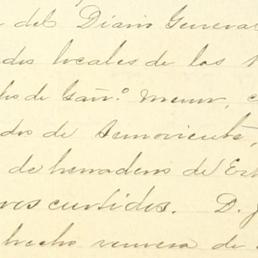 del Diario General
dos locales de los
de Gan.º menor, 
dos de Semoviente,
de herraderos de
curtidos. D.
hecho remesa de